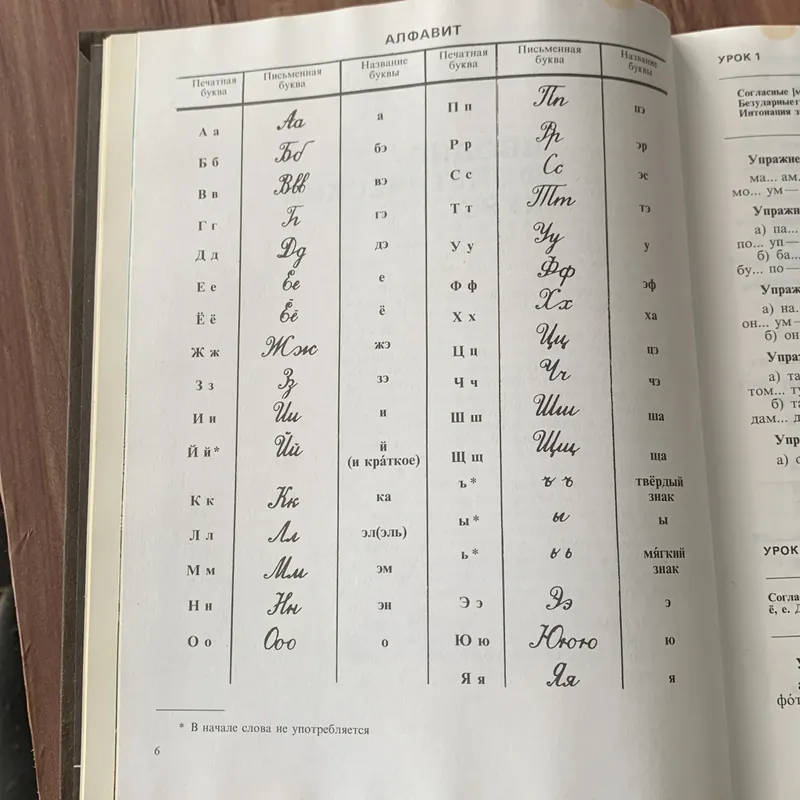 АЛФАВИТ
Печатная буква Письменная буква Название буквы Печатная буква Письменная буква Название буквы
А а Аа а П п Пп пэ
Б б Бб бэ Р р Рр эр
В в Ввв вэ С с Сс эс
Г г Гг гэ Т т Тт тэ
Д д Дд дэ У у Уу у
Е е Ее е Ф ф Фф эф
Ё ё Ёё ё Х х Хх ха
Ж ж Жж жэ Ц ц Цц цэ
З з Зз зэ Ч ч Чч чэ
И и Ии и Ш ш Шш ша
Й й* Йй й (и кра́ткое) Щ щ Щщ ща
К к Кк ка ъ* ъ ъ твёрдый знак
Л л Лл эл(эль) ы* ы ы
М м Мм эм ь* ь ь мя́гкий знак
Н н Нн эн Э э Ээ э
О о Ооо о Ю ю Ююю ю
Я я Яя я
* В начале слова не употребляется
6
УРОК 1
Согласные
Безударные
Интонация
ма... ам.
мо... ум—
а) па...
по... уп—
б) ба...
бу... по—
а) на.
он... ум—
б) он
а) та
том... ту
б) та
дам...
а)
УРОК
ё, е.